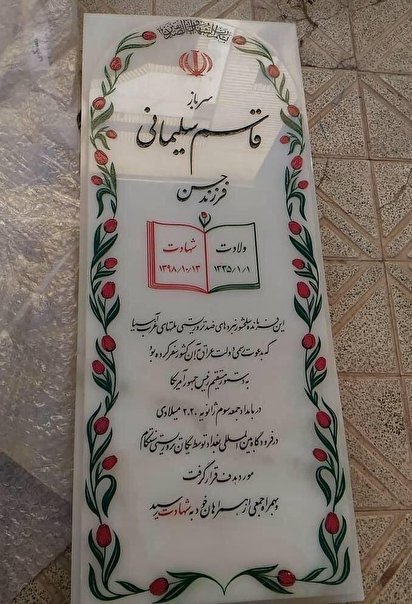 سرباز
قاسم سلیمانی
فرزند حسن
ولادت
۱۳۳۵/۱/۱
شهادت
۱۳۹۸/۱۰/۱۳
این فرمانده دلاور نبردهای ضد تروریستی ملتهای غرب آسیا
که به دعوت رسمی دولت عراق به آن کشور سفر کرده بود
به دستور مستقیم رئیس جمهور آمریکا
در بامداد جمعه سوم ژانویه ۲۰۲۰ میلادی
در فرودگاه بین المللی بغداد توسط یگان تروریستی سنتکام
مورد هدف قرار گرفت
و بهمراه جمعی از همراهان خود به شهادت رسید